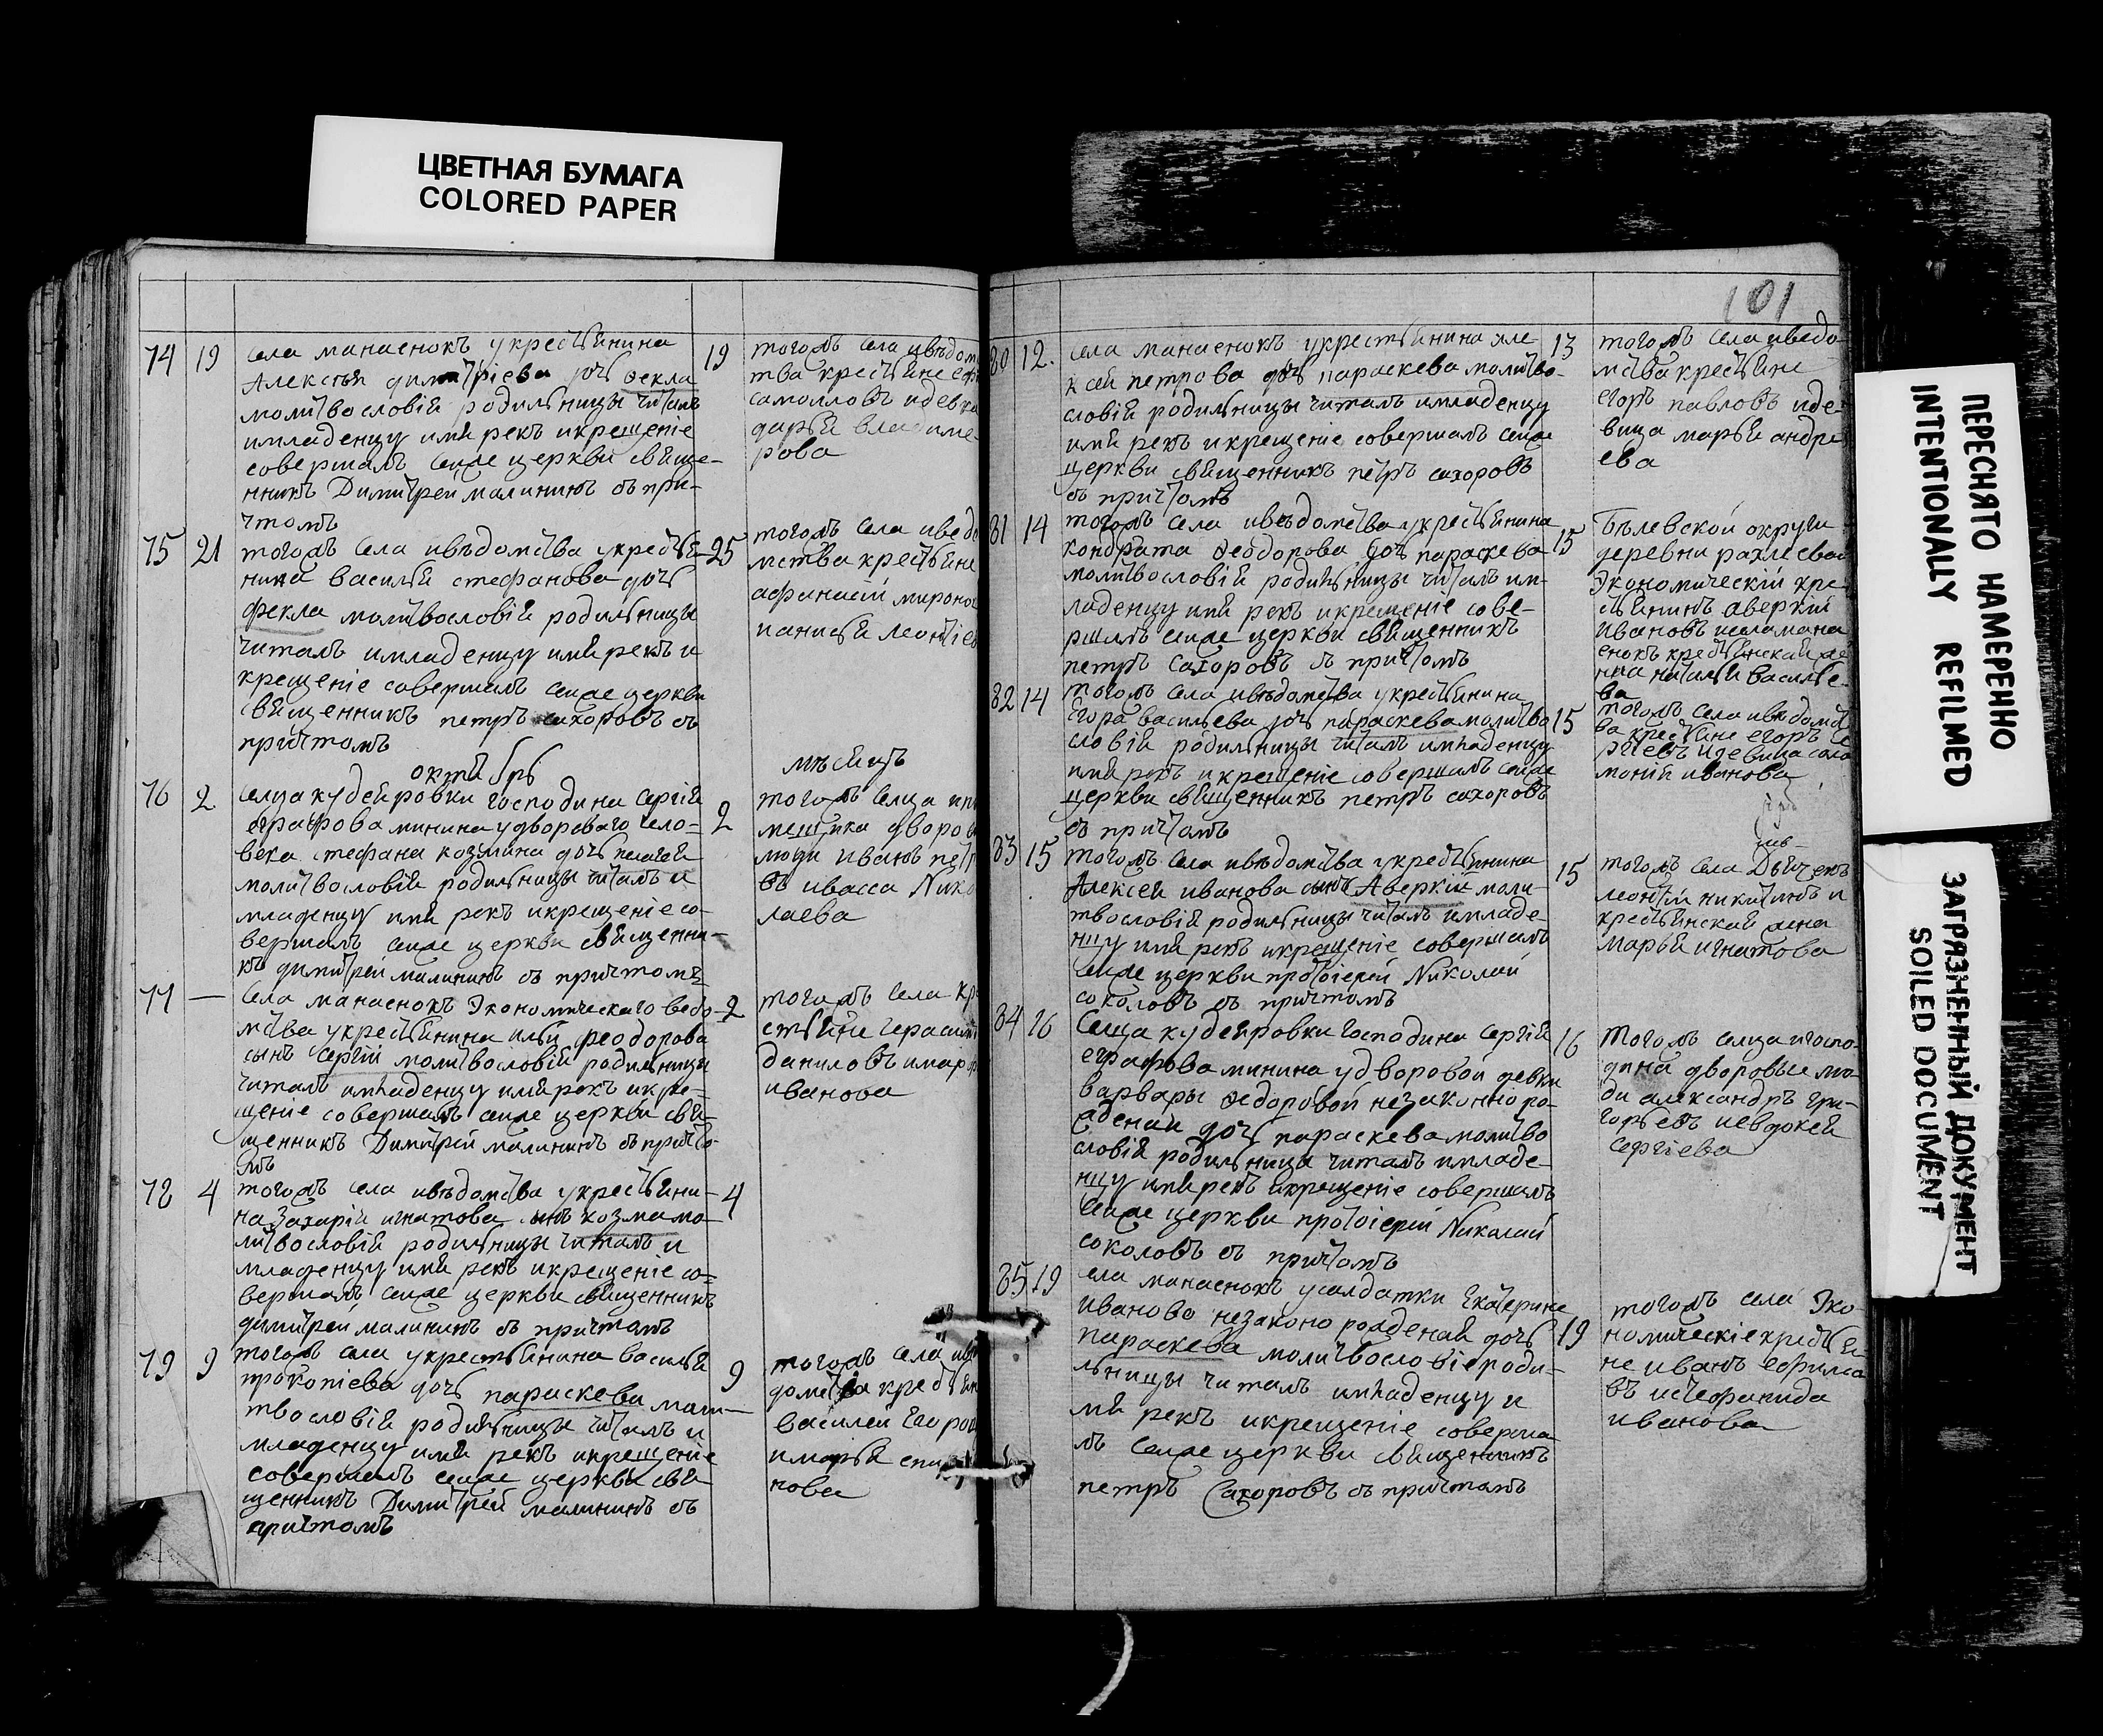 ЦВЕТНАЯ БУМАГА
COLORED PAPER
74 19 села манаенокъ укрестьянина
Алексѣя димитріева дочь Фекла
молитвословій родильницы читалъ
имладенцу имя рекъ икрещеніе
совершалъ сеяже церкви свяще-
нникъ Димитрей малининъ съ при-
чтомъ
19 тогожъ села ивѣдом
тва крестьяне
самоиловъ идевка
дарья владиме-
рова
75 21 тогожъ села ивѣдомства укрестья-
нина василья стефанова дочь
фекла молитвословій родильницы
читалъ имладенцу имя рекъ и
крещеніе совершалъ сеяже церкви
священникъ петръ сахоровъ съ
причтомъ
25 тогожъ села иведо
мства крестьяне
афанасій мироно
Леонтіев
октябрь
мѣсяцъ
76 2 селца кудеяровки господина сергія
еграфова минина удвороваго чело-
века стефана козмина дочь пелагея
молитвословій родильницы читалъ и
младенцу имя рекъ икрещеніе со-
вершалъ сеяже церкви священни-
къ димитрей малининъ съ причтомъ
2 тогожъ селца ипо
мещика дворов
люди иванъ пет
въ ивасса Нико
лаева
77 — села манаенокъ Экономическаго ведо-
мства укрестьянина ильи феодорова
сынъ сергій молитвословій родильницы
читалъ имладенцу имя рекъ икре-
щеніе совершалъ сеяже церкви свя-
щенникъ Димитрей малининъ съ причто-
мъ
2 тогожъ села кре
стьяне герасим
даниловъ имарф
иванова
78 4 тогожъ села ивѣдомства укрестьяни-
на Захарія игнатова сынъ козма мо-
литвословій родильницы читалъ и
младенцу имя рекъ икрещеніе со-
вершалъ сеяже церкви священникъ
димитрей малининъ съ причтомъ
4
79 9 тогожъ села укрестьянина василья
прокофева дочь параскева моли-
твословій родильницы читалъ и
младенцу имя рекъ икрещеніе
совершалъ сеяже церкви свя-
щенникъ Димитрей малининъ съ
причтомъ
9 тогожъ села ивѣ
домства крестьян
василей Егоров
имарья
нова
101
80 12 села манаенокъ укрестьянина але-
ксея петрова дочь параскева молитво-
словій родильницы читалъ имладенцу
имя рекъ икрещеніе совершалъ сеяже
церкви священникъ петръ сахоровъ
съ причтомъ
13 тогожъ села иведо
мства крестьяне
егоръ павловъ иде-
вица марья андре
ева
81 14 тогожъ села ивѣдомства укрестьянина
кондрата Феодорова дочь параскева
молитвословій родильницы читалъ им-
ладенцу имя рекъ икрещеніе сове-
ршалъ сеяже церкви священникъ
петръ сахоровъ съ причтомъ
15 Бѣлевской округи
деревни рахлеевой
Экономическій кре-
стьянинъ аверкій
ивановъ иселамана
енокъ крестьянская же
нна наталья василье-
ва
82 14 тогожъ села ивѣдомства укрестьянина
Егора васильева дочь параскева молитво
словій родильницы читалъ имладенцу
имя рекъ икрещеніе совершалъ сеяже
церкви священникъ петръ сахоровъ
съ причтомъ
15 тогожъ села ивѣдомст
ва крестьяне егоръ се
ргіевъ идевица соло
монія иванова
83 15 тогожъ села ивѣдомства укрестьянина
Алексея иванова сынъ Аверкій моли-
твословій родильницы читалъ имладе-
нцу имя рекъ икрещеніе совершалъ
сеяже церкви протоіерей Николай
соколовъ съ причтомъ
15 тогожъ села Дьячекъ
леонтій никитинъ и
крестьянская жена
марья игнатова
84 16 Селца кудеяровки господина сергія
еграфова минина удворовой девки
варвары Федоровой незаконно ро-
жденая дочь параскева молитво
словій родильницы читалъ имладе-
нцу имя рекъ икрещеніе совершалъ
сеяже церкви протоіерей Николай
соколовъ съ причтомъ
16 тогожъ селца игоспо-
дина дворовые лю-
ди александръ гри-
горьевъ иевдокея
сергіева
85 19 села манаенокъ усалдатки Екатерине
ивановo незаконо рожденая дочь
параскева молитвословіе роди-
льницы читалъ имладенцу и
мя рекъ икрещеніе соверша
лъ сеяже церкви священникъ
петръ Сахоровъ съ причтомъ
19 тогожъ села Эко
номическіе крестья-
не иванъ ефимо
въ истефанида
иванова
ПЕРЕСНЯТО НАМЕРЕННО
INTENTIONALLY REFILMED
ЗАГРЯЗНЕННЫЙ ДОКУМЕНТ
SOILED DOCUMENT